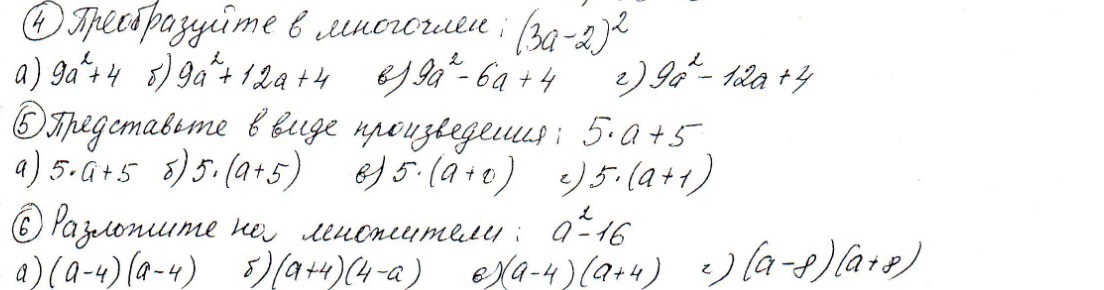 ④ Преобразуйте в многочлен: (3a-2)²
а) 9a²+4 б) 9a²+12a+4 в) 9a²-6a+4 г) 9a²-12a+4
⑤ Представьте в виде произведения: 5·a+5
а) 5·a+5 б) 5·(a+5) в) 5·(a+0) г) 5·(a+1)
⑥ Разложите на множители: a²-16
а) (a-4)(a-4) б) (a+4)(4-a) в) (a-4)(a+4) г) (a-8)(a+8)